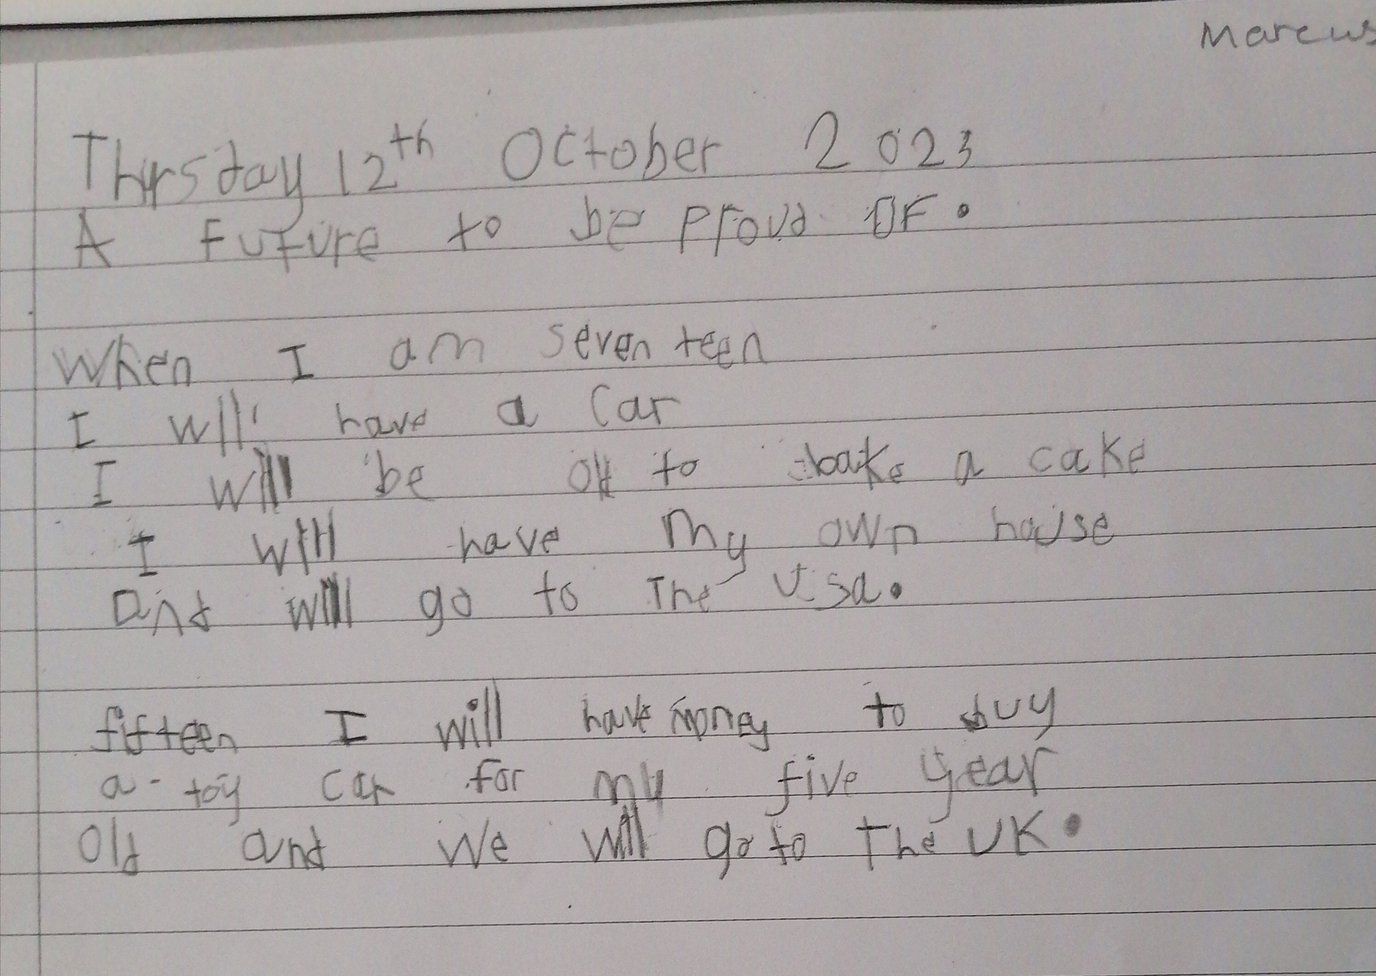 Marcus
Thrsday 12th October 2023
A future to be proud OF.
When I am seventeen
I will have a car
I will be old to bake a cake
I will have my own house
and will go to The Usa.
fifteen I will have money to buy
a toy car for my five year
old and we will go to The UK.